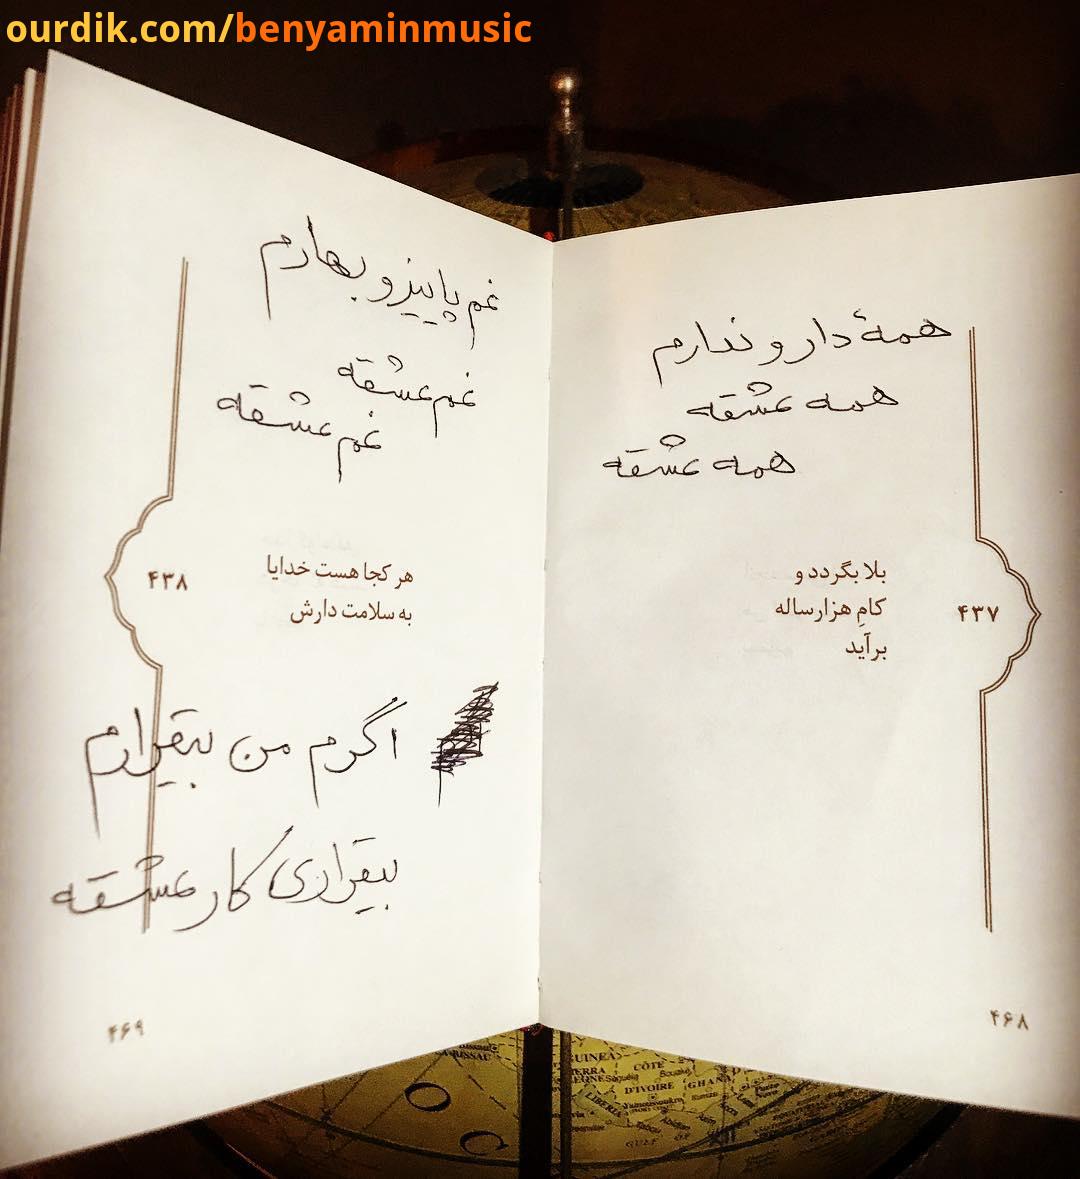 ourdik.com/benyaminmusic
همهٔ دار و ندارم
همه عشقه
همه عشقه
بلا بگردد و
کامِ هزارساله
برآید
۴۳۷
۴۶۸
غم پاییز و بهارم
غم عشقه
غم عشقه
هر کجا هست خدایا
به سلامت دارش
۴۳۸
اگرم من بیقرارم
بیقراری کار عشقه
۴۶۹
GUINEA
CÔTE
D'IVOIRE
GHANA
LIBERIA
GULF OF